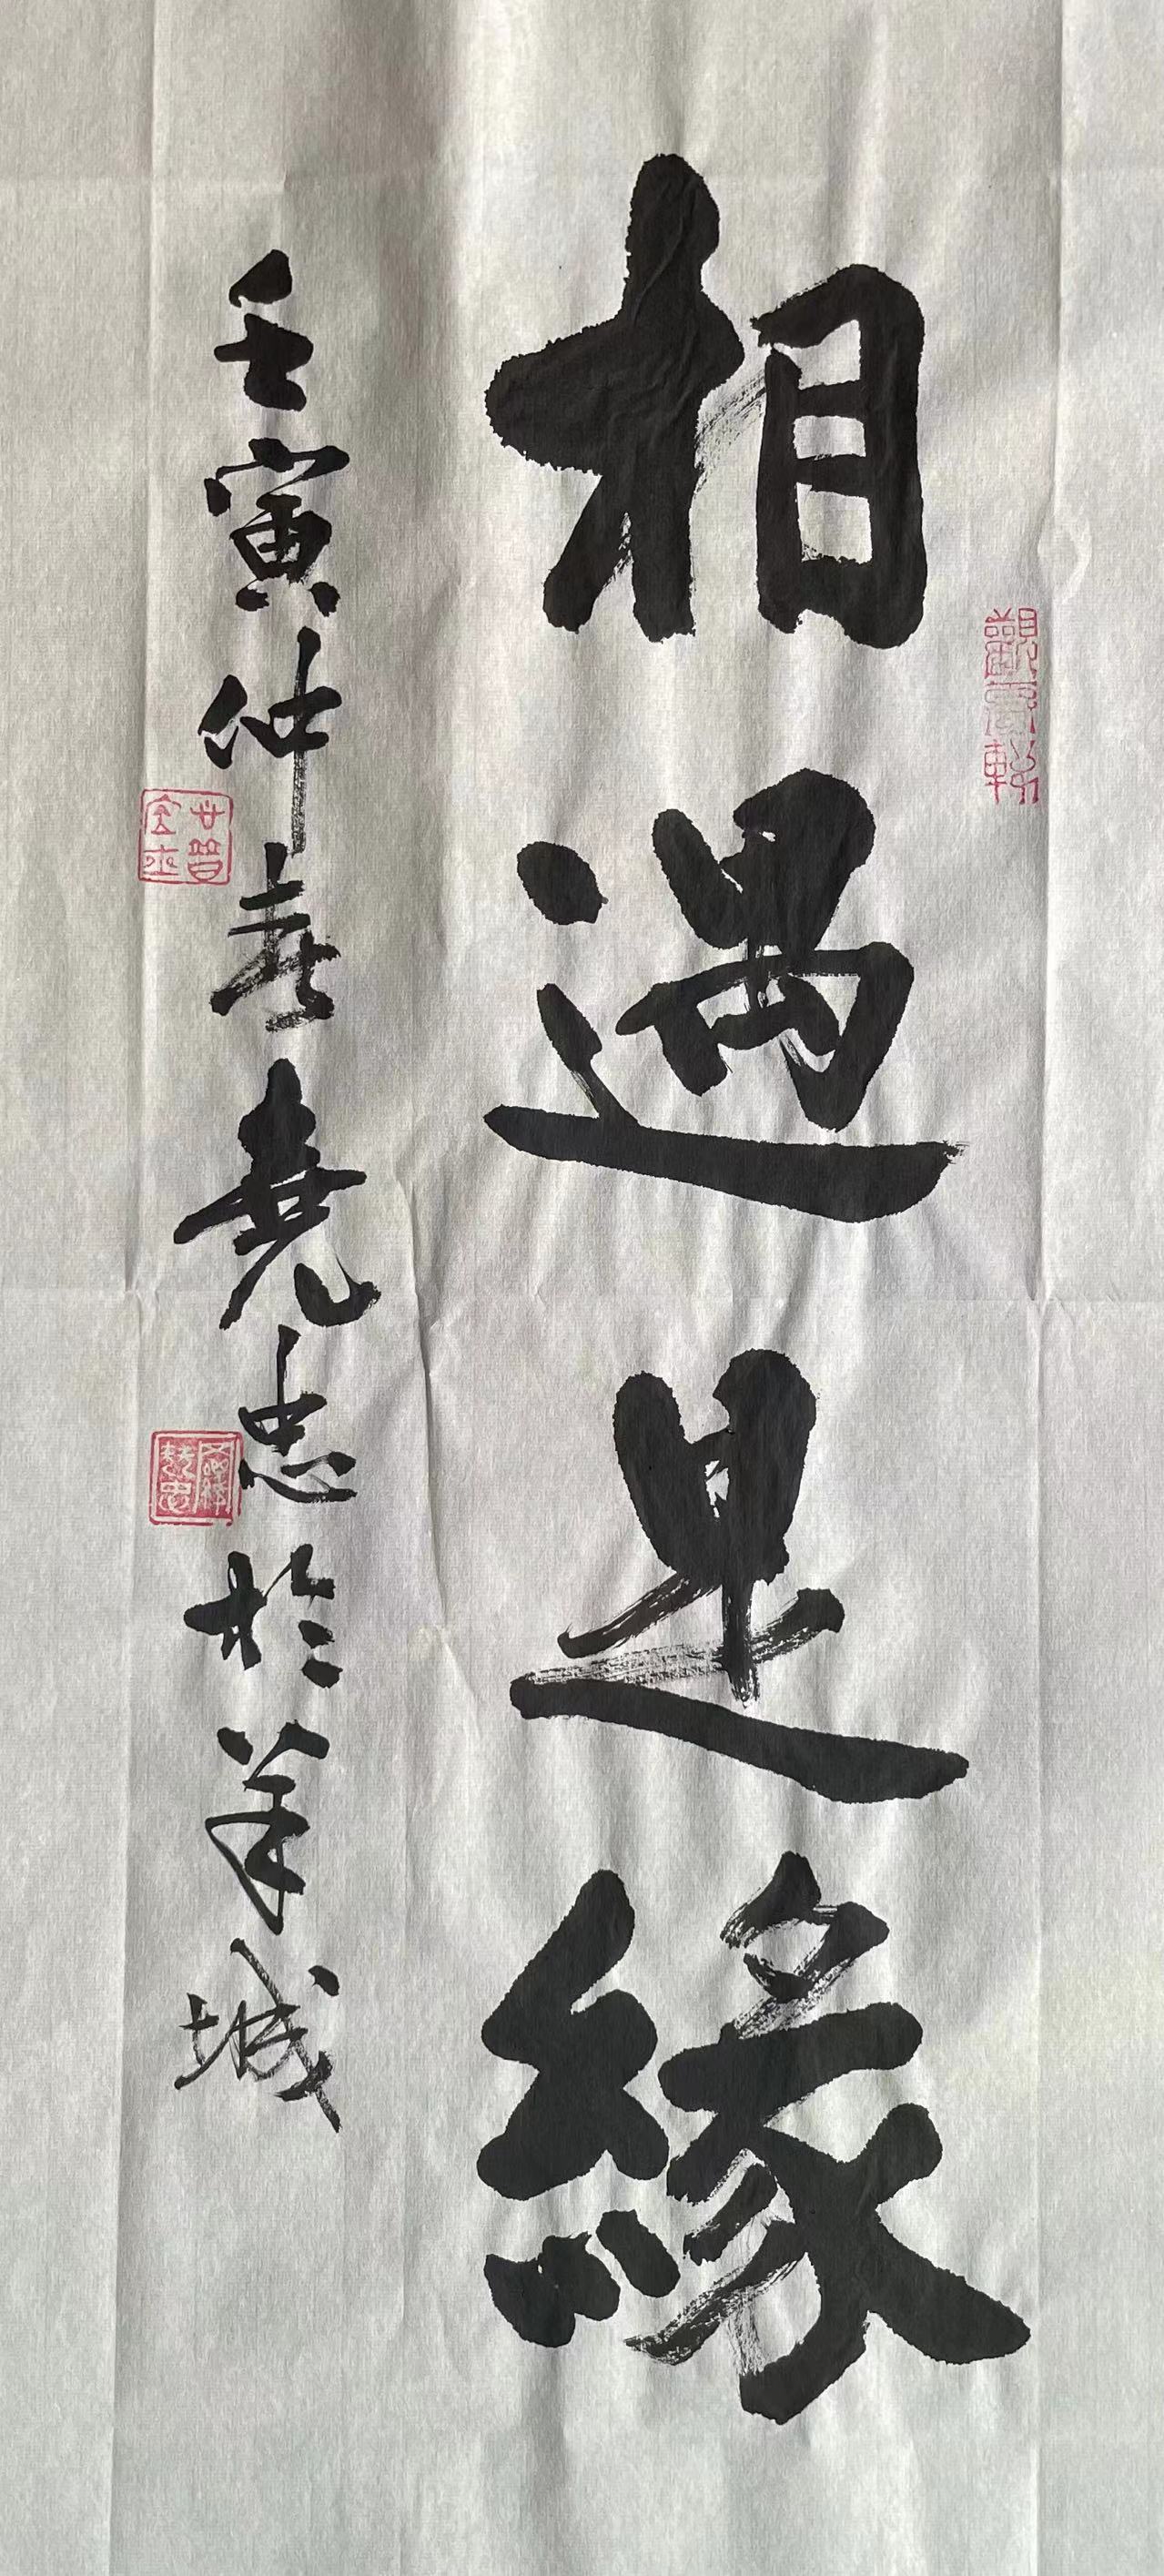 相遇是緣
壬寅仲春堯忠於羊城